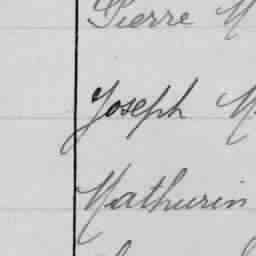 Pierre M
Joseph M
Mathurin